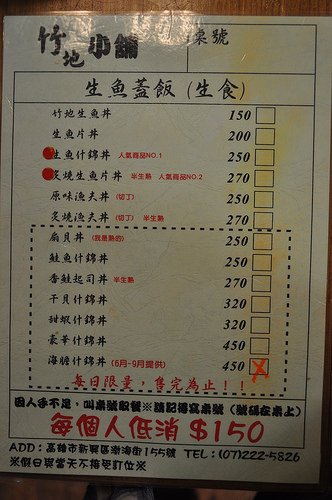 竹地小舖
桌號
生魚蓋飯 (生食)
竹地生魚丼 150
生魚片丼 200
生魚什錦丼 人氣商品NO.1 250
炙燒生魚片丼 半生熟 人氣商品NO.2 270
原味漁夫丼 (切丁) 250
炙燒漁夫丼 (切丁) 半生熟 270
扇貝丼 (我是熟的) 250
鮭魚什錦丼 250
香鮭起司丼 半生熟 270
干貝什錦丼 320
甜蝦什錦丼 320
豪華什錦丼 450
海膽什錦丼 (6月-9月提供) 450
每日限量，售完為止！！
因人手不足，叫桌號取餐※請記得寫桌號 (號碼在桌上)
每個人低消 $150
ADD：高雄市新興區南海街155號 TEL：(07)222-5826
※假日與當天不接受訂位※